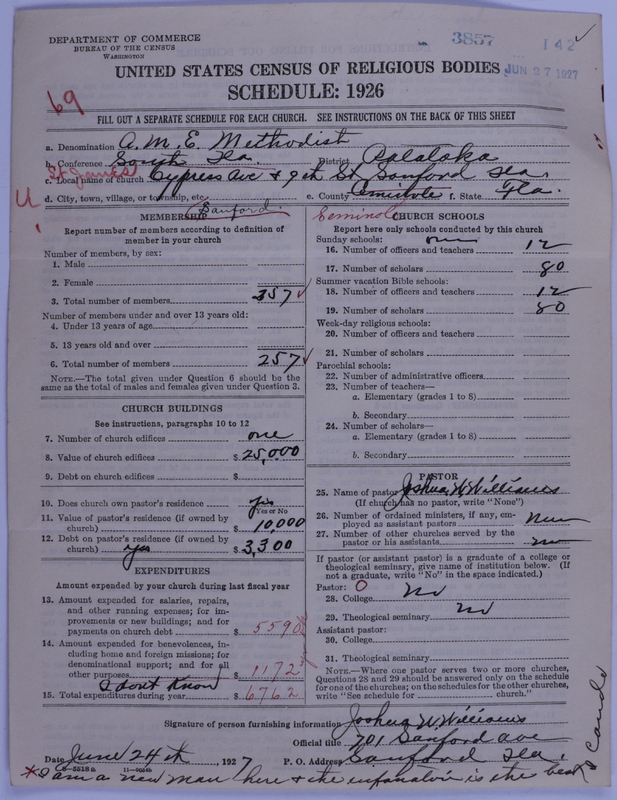 DEPARTMENT OF COMMERCE
BUREAU OF THE CENSUS
WASHINGTON
3857
142
JUN 27 1927
UNITED STATES CENSUS OF RELIGIOUS BODIES
SCHEDULE: 1926
69
FILL OUT A SEPARATE SCHEDULE FOR EACH CHURCH. SEE INSTRUCTIONS ON THE BACK OF THIS SHEET
a. Denomination A.M.E. Methodist
b. Conference South Fla. District Palatka
St James
c. Local name of church Cypress Ave & 9th St Sanford Fla.
d. City, town, village, or township, etc. Sanford. e. County f. State Fla.
Seminole
U
MEMBERSHIP
Report number of members according to definition of member in your church
Number of members, by sex:
1. Male
2. Female
3. Total number of members 357
Number of members under and over 13 years old:
4. Under 13 years of age
5. 13 years old and over
6. Total number of members 257
NOTE.—The total given under Question 6 should be the
same as the total of males and females given under Question 3.
CHURCH BUILDINGS
See instructions, paragraphs 10 to 12
7. Number of church edifices one
8. Value of church edifices $ 25,000
9. Debt on church edifices $
10. Does church own pastor's residence yes
Yes or No
11. Value of pastor's residence (if owned by
church) $ 10,000
12. Debt on pastor's residence (if owned by
church) yes $ 3,300
EXPENDITURES
Amount expended by your church during last fiscal year
13. Amount expended for salaries, repairs,
and other running expenses; for im-
provements or new buildings; and for
payments on church debt $ 5590
14. Amount expended for benevolences, in-
cluding home and foreign missions; for
denominational support; and for all
other purposes $ 1172
I don't Know
15. Total expenditures during year $ 6762
CHURCH SCHOOLS
Report here only schools conducted by this church
Sunday schools: one
16. Number of officers and teachers 12
17. Number of scholars 80
Summer vacation Bible schools:
18. Number of officers and teachers 12
19. Number of scholars 80
Week-day religious schools:
20. Number of officers and teachers
21. Number of scholars
Parochial schools:
22. Number of administrative officers
23. Number of teachers—
a. Elementary (grades 1 to 8)
b. Secondary
24. Number of scholars—
a. Elementary (grades 1 to 8)
b. Secondary
PASTOR
25. Name of pastor Joshua W Williams
(If church has no pastor, write "None")
26. Number of ordained ministers, if any, em-
ployed as assistant pastors
27. Number of other churches served by the
pastor or his assistants
If pastor (or assistant pastor) is a graduate of a college or
theological seminary, give name of institution below. (If
not a graduate, write "No" in the space indicated.)
Pastor: O
28. College no
29. Theological seminary no
Assistant pastor:
30. College
31. Theological seminary
NOTE.—Where one pastor serves two or more churches,
Questions 28 and 29 should be answered only on the schedule
for one of the churches; on the schedules for the other churches,
write "See schedule for church."
Signature of person furnishing information Joshua W Williams
Official title 701 Sanford ave
Date June 24th, 1927 P. O. Address Sanford Fla.
I am a new man here & the is the best
I could